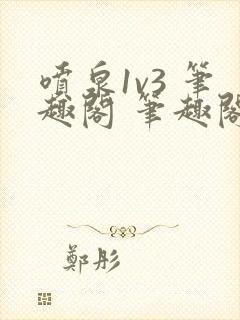 噴泉1v3 筆
趣閣 筆趣閣
鄭彤